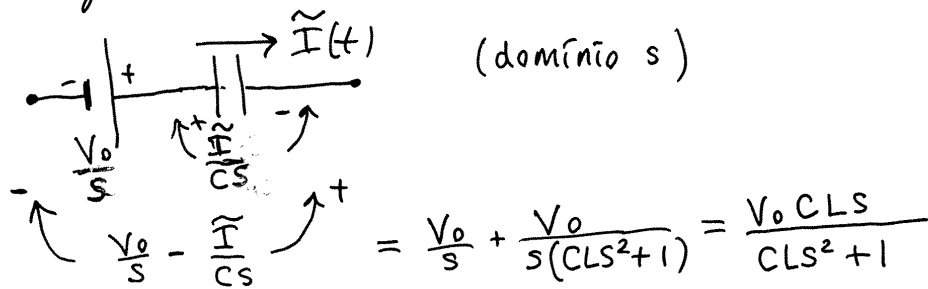 Ĩ(t)
(domínio s)
- +
+ Ĩ/CS -
V₀/S
- V₀/S - Ĩ/CS + = V₀/S + V₀/S(CLS²+1) = V₀CLS/CLS²+1